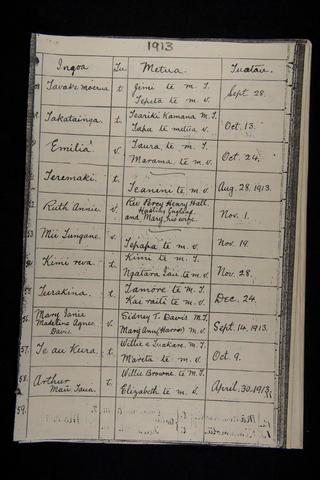 1913
Ingoa Tu Metua. Tuatau.
Tavake moerua t. Jimi te m. T. Sept. 28.
Tepeta te m. v.
Takatainga. t. Teariki Kamana M. T. Oct. 13.
Tapu te metua v.
Emilia v. Taura te m. T. Oct. 24.
Marama te m. v.
Teremaki. t.
Teanini te m. v. Aug. 28. 1913.
Ruth Annie. v. Rev Percy Henry Hall Nov. 1.
Hastings England
and Mary, his wife.
53 Mii Tungane. v.
Tepapa te m. v. Nov. 19.
54 Kimi reva. t. Kimi te m. T. Nov. 28.
Ngatara Lau te m. v.
55. Turakina. t. Tamore te m. T. Dec. 24.
Kae raiti te m. v.
56 Mary Janie v. Sidney T. Davis M. T. Sept. 14. 1913.
Madeline Agnes
Davis. Mary Ann (Harro) M. v.
57. Te au Kura. t. Willie e Tuakere M. T. Oct. 9.
Mareta te m. v.
58. Arthur t. Willie Browne te m. T. April. 30. 1913.
Mari Taua. Elizabeth te m. v.
59.